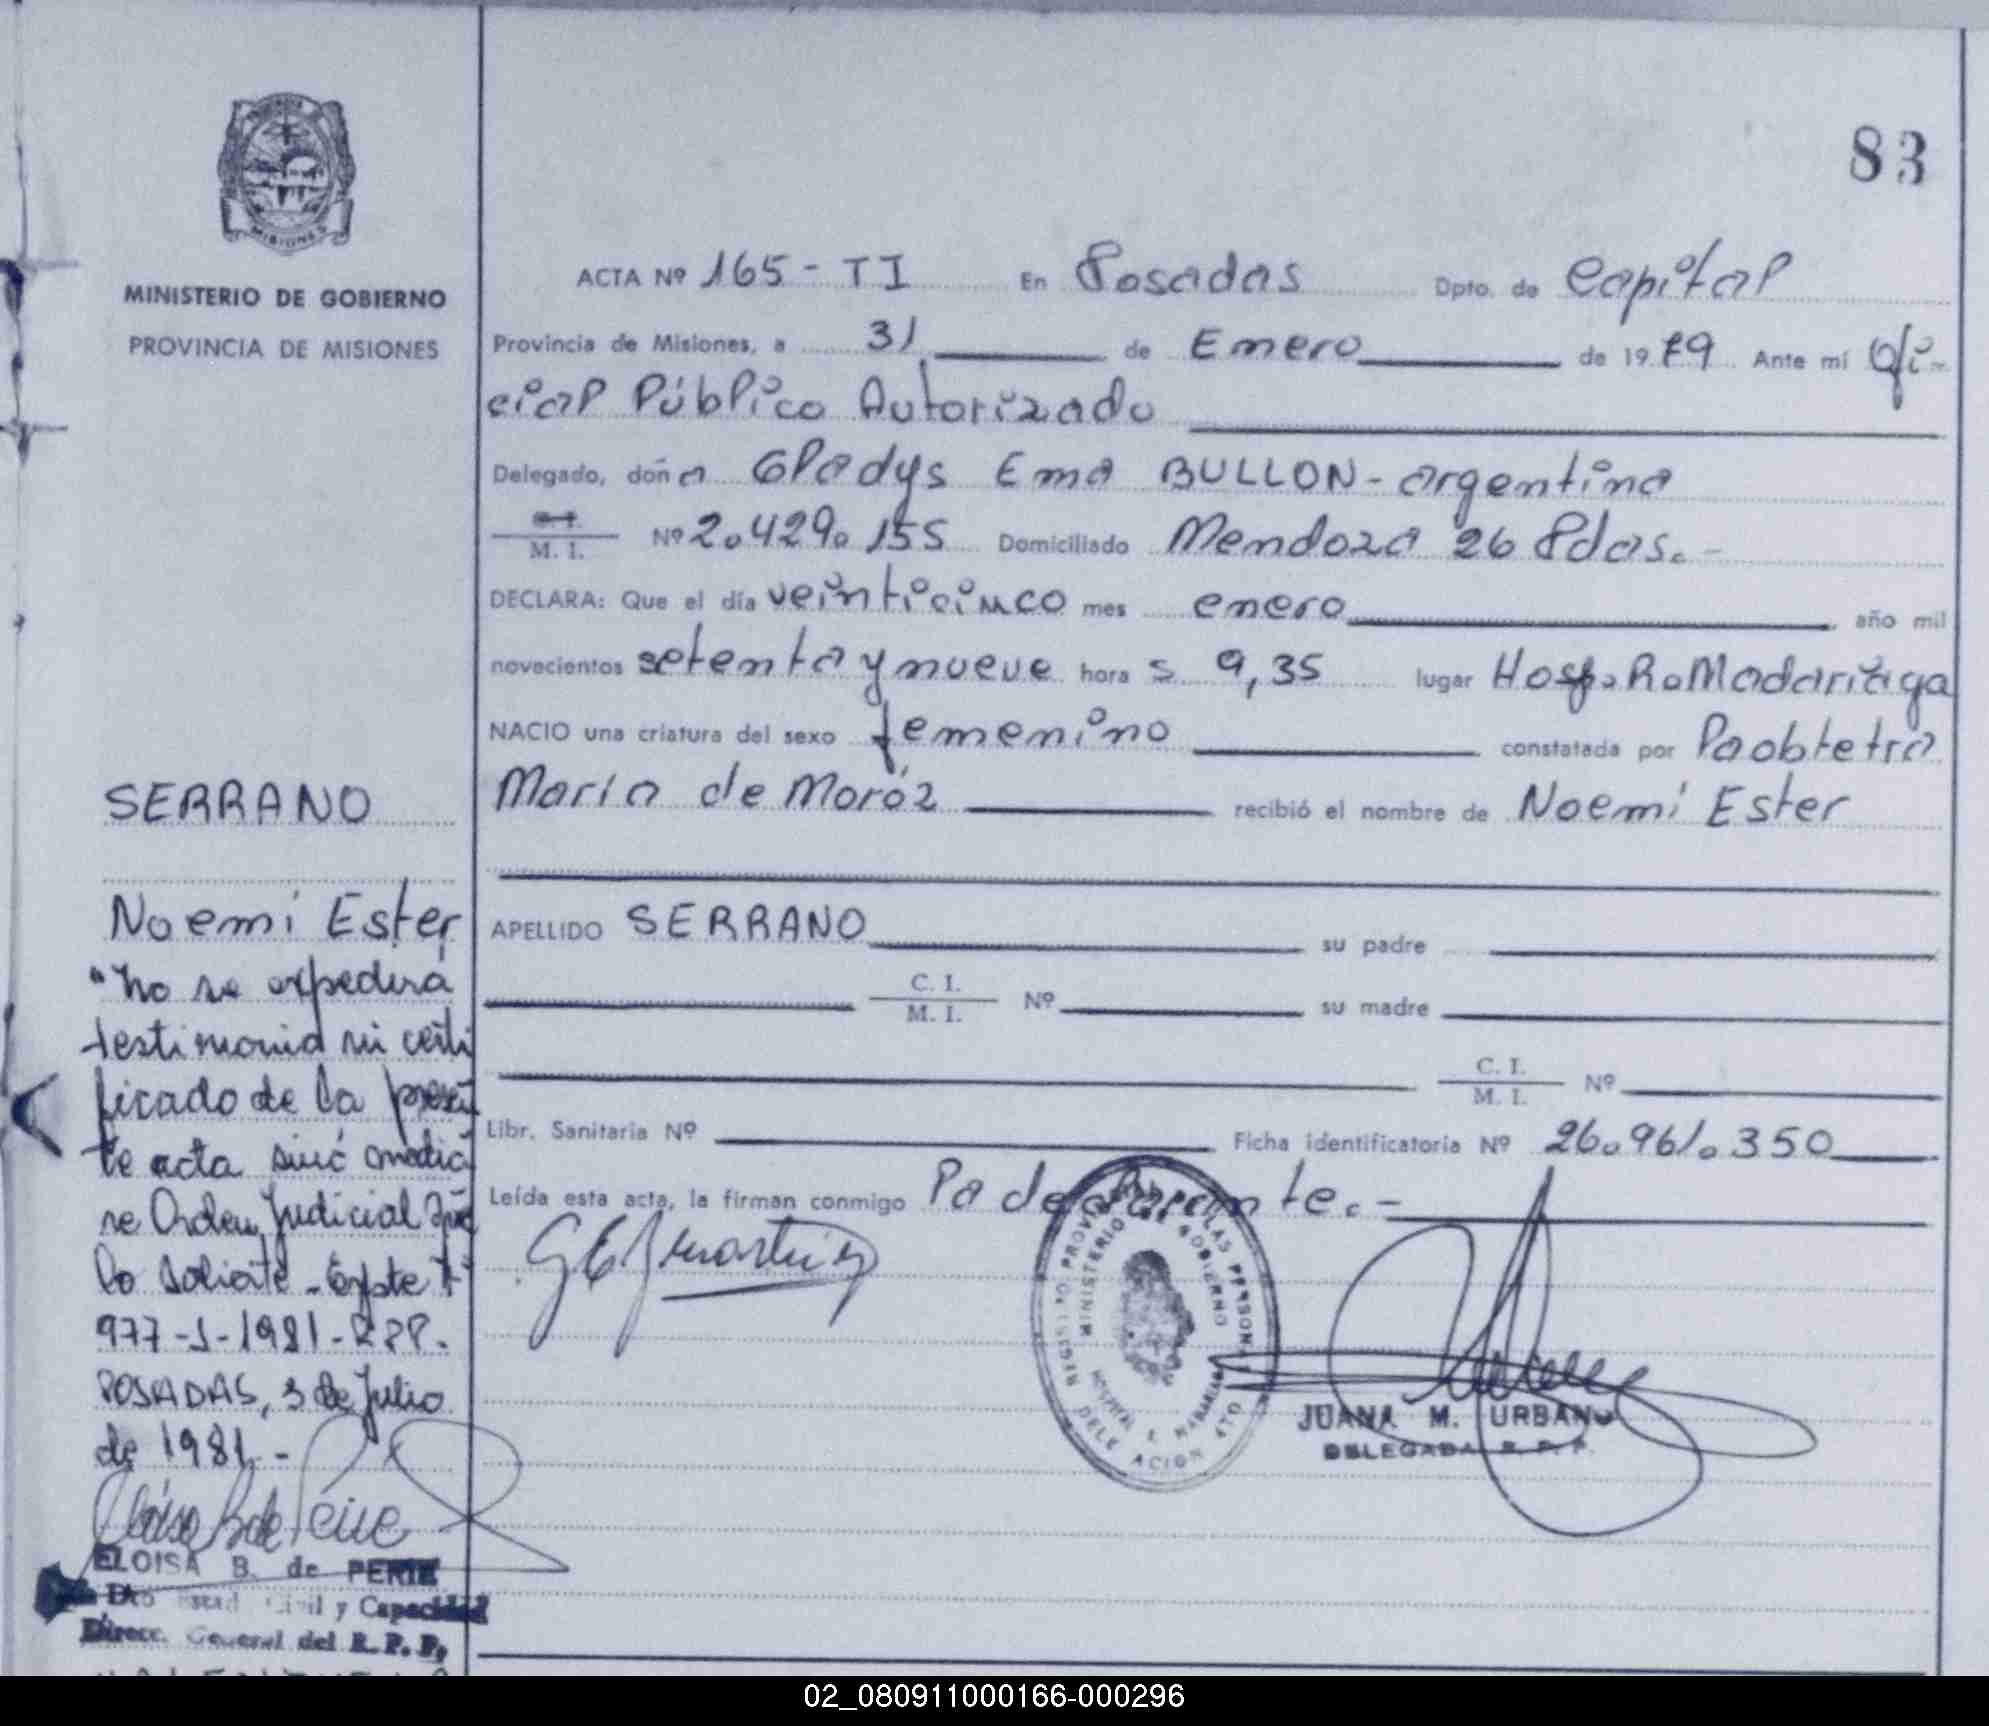 MISIONES
MINISTERIO DE GOBIERNO
PROVINCIA DE MISIONES
SERRANO
Noemí Ester
"No se expedirá
testimonio ni certi
ficado de la presen
te acta sinó median
te Orden Judicial que
lo solicite - Expte
977-S-1981-RPP.
POSADAS, 3 de Julio
de 1981.-
ELOISA B. de PERIE
Dto Estad Civil y Capacidad
Direcc. General del R. P. P.
83
ACTA Nº 165 - TI En Posadas Dpto. de Capital
Provincia de Misiones, a 31 de Enero de 1979 Ante mí Ofi-
cial Público Autorizado
Delegado, doña Gladys Ema BULLON - argentina
C. I.
M. I. Nº 2.429.155 Domiciliado Mendoza 26 Pdas.-
DECLARA: Que el día veinticinco mes enero año mil
novecientos setenta y nueve horas 9,35 lugar Hosp. R. Madariaga
NACIO una criatura del sexo femenino constatada por Paobtetra
María de Moróz recibió el nombre de Noemí Ester
APELLIDO SERRANO su padre
C. I.
M. I. Nº su madre
C. I.
M. I. Nº
Libr. Sanitaria Nº Ficha identificatoria Nº 26.961.350
Leída esta acta, la firman conmigo Pa declarante.-
MINISTERIO DE GOBIERNO
DELEGACION 4TO
JUANA M. URBANO
DELEGADA R. P. P.
02_080911000166-000296